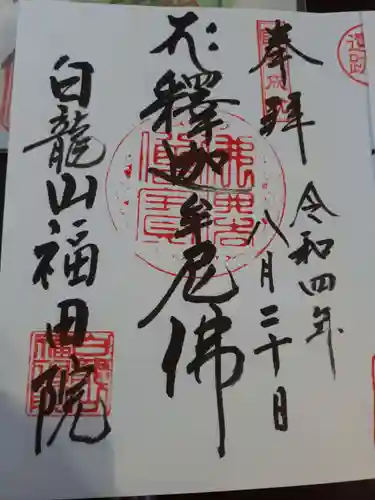 奉拝
令和四年
八月二十日
釋迦牟尼佛
白龍山福田院